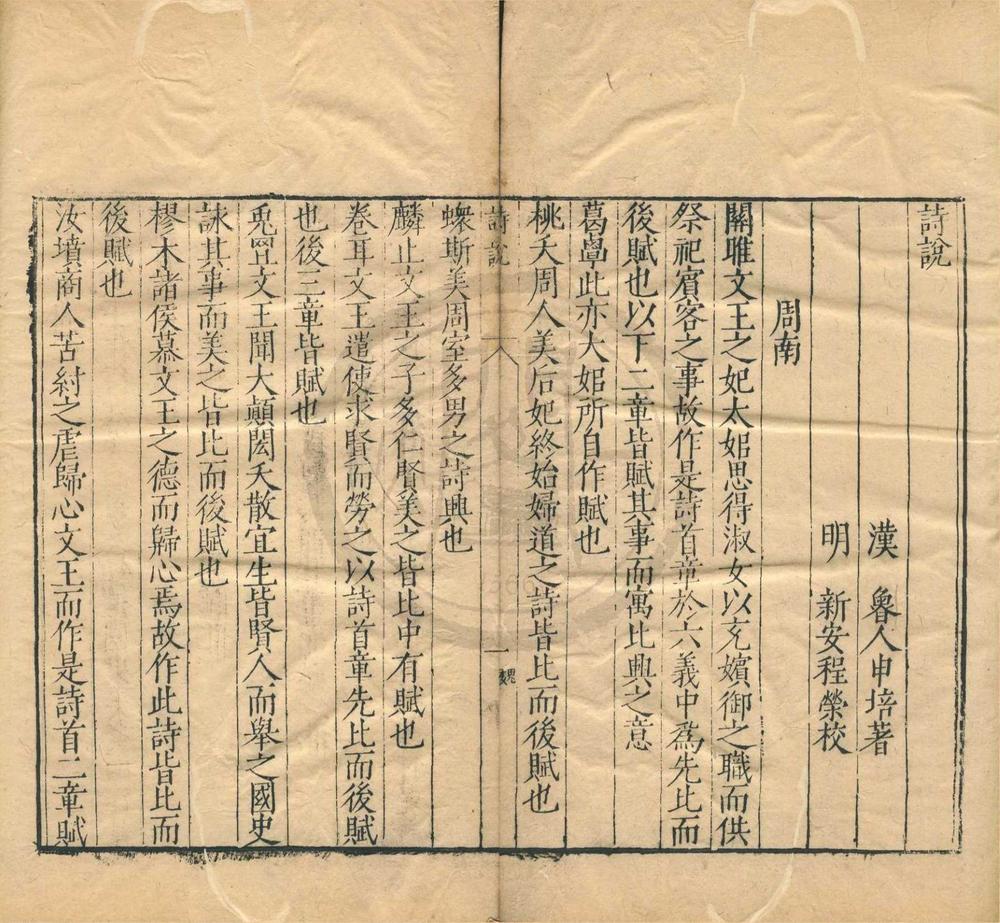 詩說
漢　魯人申培著
明　新安程榮校
周南
關雎文王之妃太姒思得淑女以充嬪御之職而供
祭祀賓客之事故作是詩首章於六義中爲先比而
後賦也以下二章皆賦其事而寓比興之意
葛蕌此亦大姒所自作賦也
桃夭周人美后妃終始婦道之詩皆比而後賦也
詩說　一
螽斯美周室多男之詩興也
麟止文王之子多仁賢美之皆比中有賦也
卷耳文王遣使求賢而勞之以詩首章先比而後賦
也後三章皆賦也
兎罝文王聞大顛閎夭散宜生皆賢人而舉之國史
詠其事而美之皆比而後賦也
樛木諸侯慕文王之德而歸心焉故作此詩皆比而
後賦也
汝墳商人苦紂之虐歸心文王而作是詩首二章賦